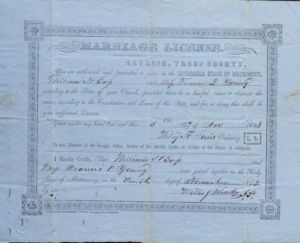 MARRIAGE LICENSE.
GEORGIA, TROUP COUNTY.
You are authorized and permitted to join, in the HONORABLE STATE OF MATRIMONY,
William H Cox and Miss Frances D Young
according to the Rites of your Church, provided there be no lawful cause to obstruct the
same, according to the Constitution and Laws of this State, and for so doing this shall be
your sufficient License.
Given under my hand and Seal this day of Nov
Ordinary L. S.
To any Minister of the Gospel, Judge, Justice of the Inferior Court, or Justice of the Peace, to celebrate.
I hereby Certify, That William H Cox and
Miss Frances D Young were joined together in the Holy
Bans of Matrimony, on the Tenth day of November